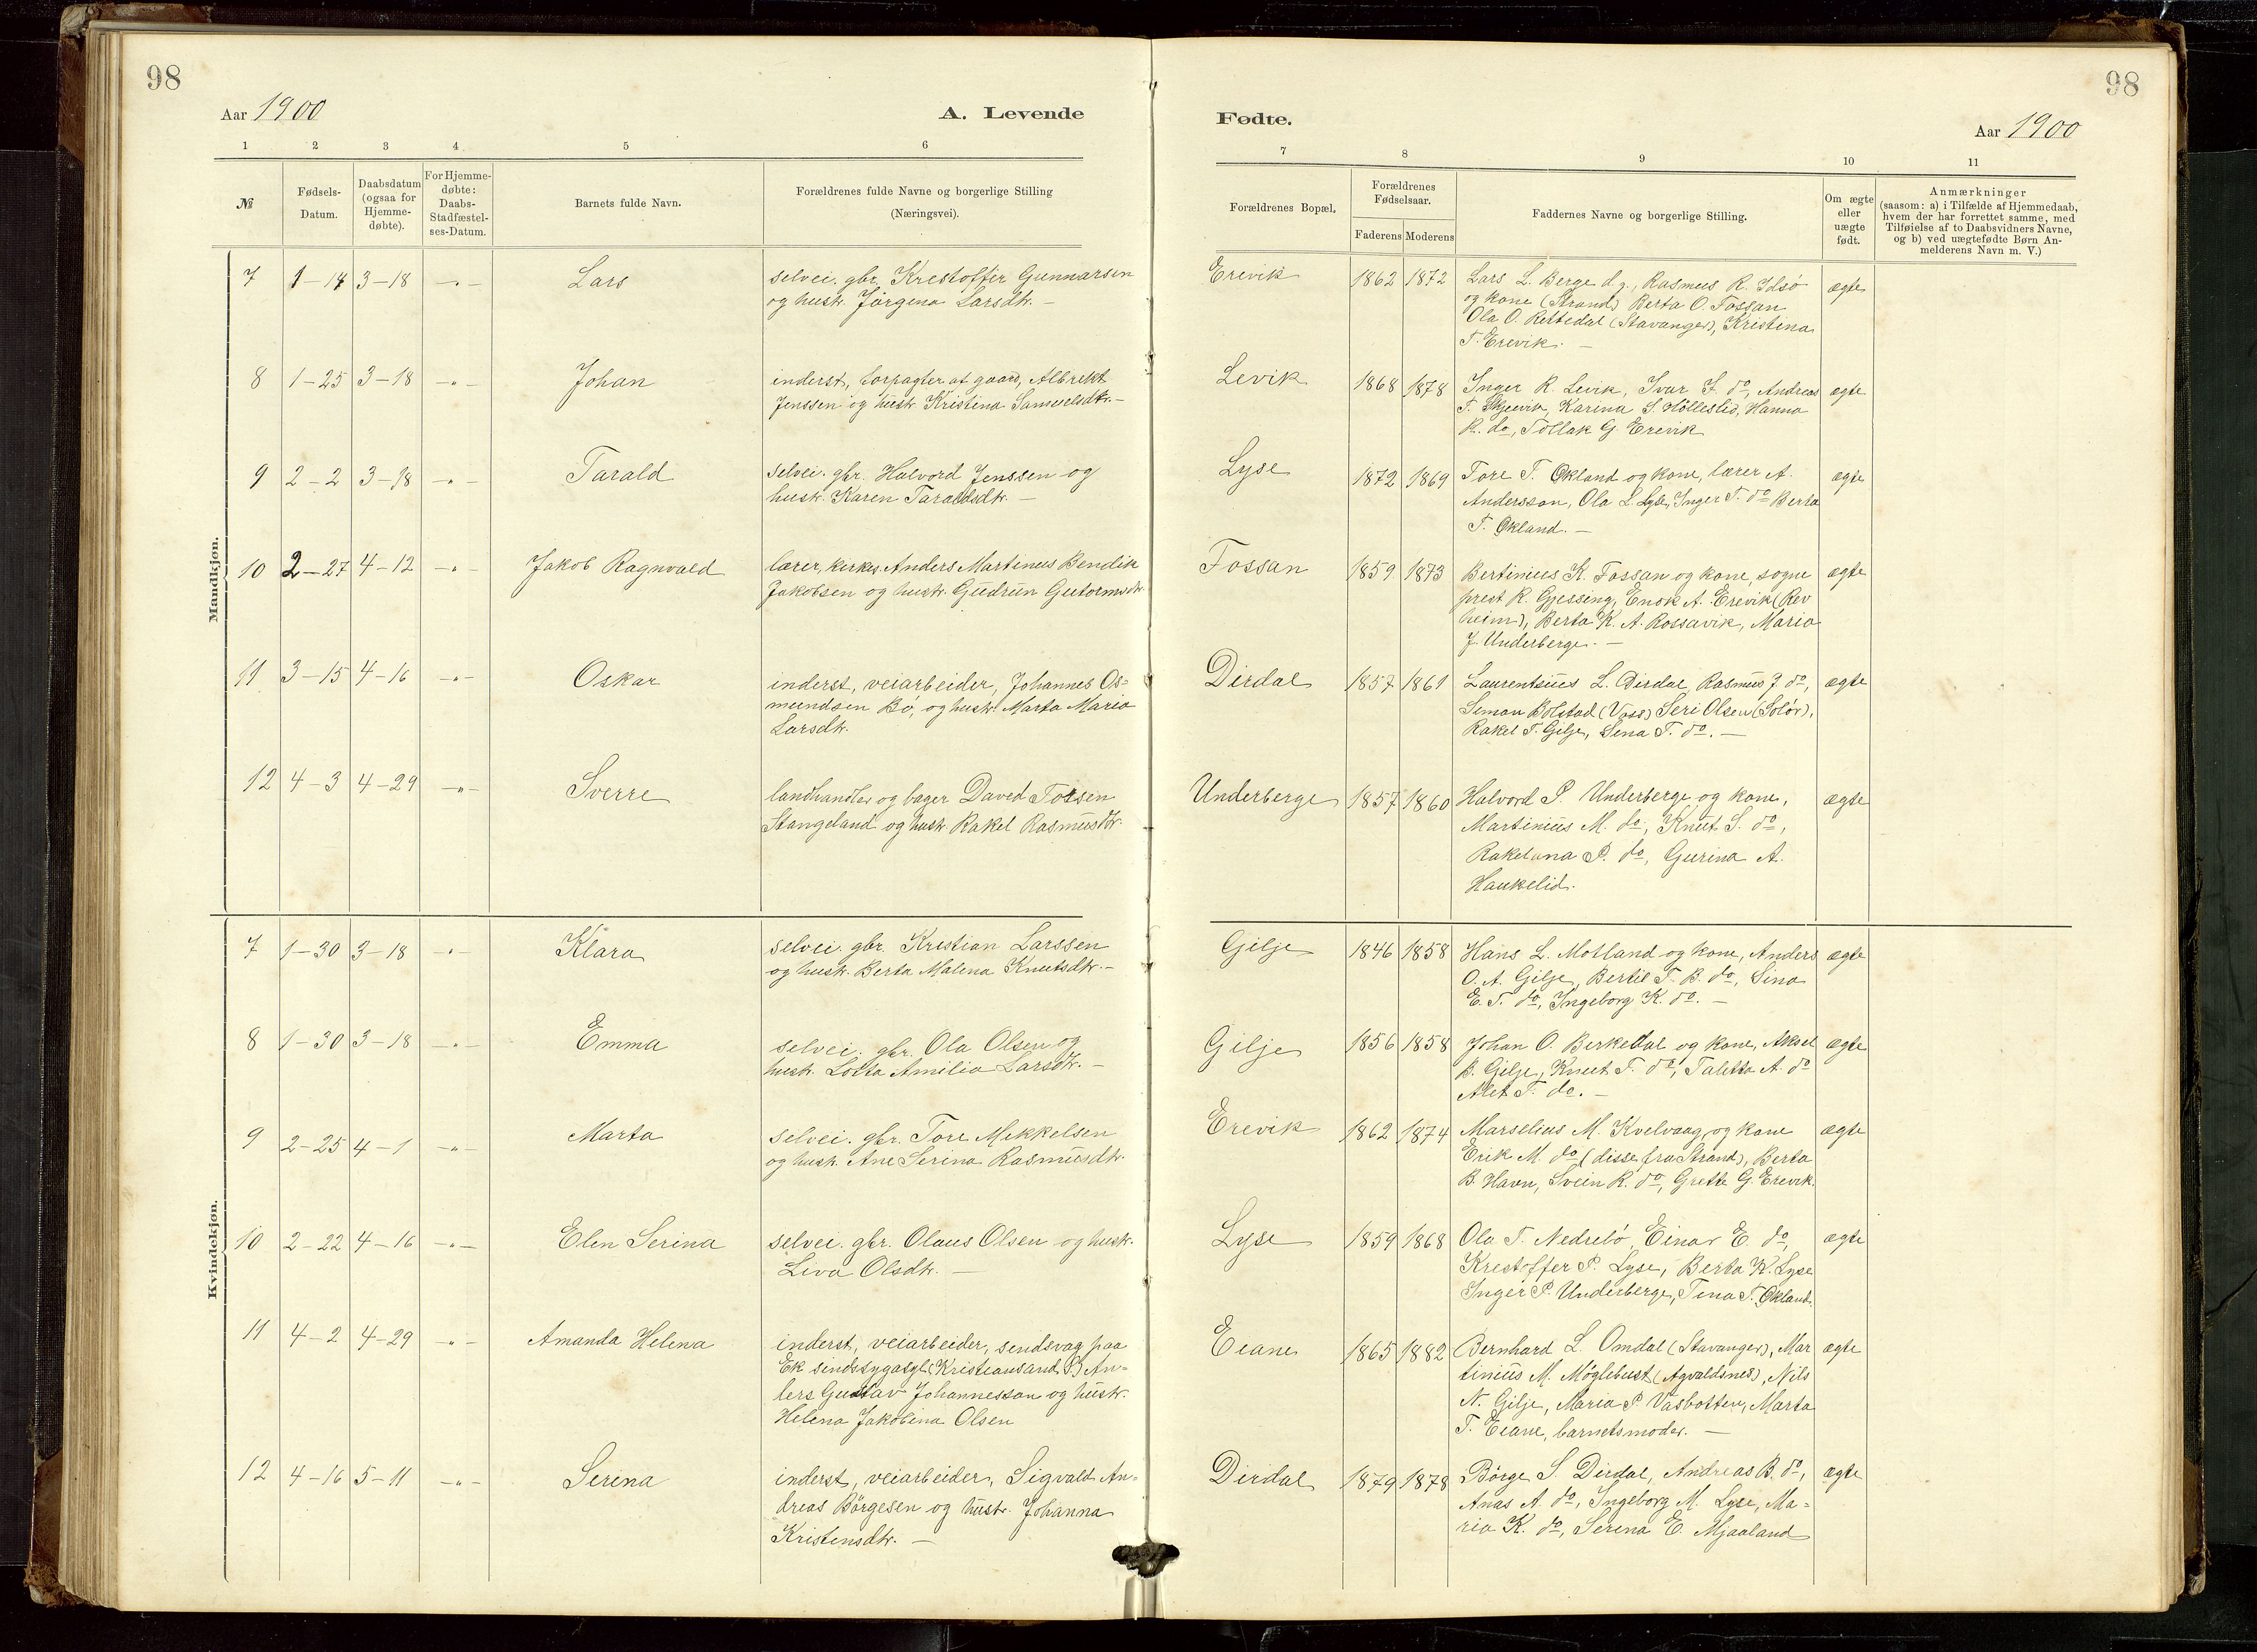 98
98
Aar 1900
A. Levende
Fødte.
Aar 1900
1 2 3 4 5 6
7 8 9 10 11
№
Fødsels-
Datum.
Daabsdatum
(ogsaa for
Hjemme-
døbte).
For Hjemme-
døbte:
Daabs-
Stadfæstel-
ses-Datum.
Barnets fulde Navn.
Forældrenes fulde Navne og borgerlige Stilling
(Næringsvei).
Forældrenes Bopæl.
Forældrenes
Fødselsaar.
Faderens Moderens
Faddernes Navne og borgerlige Stilling.
Om ægte
eller
uægte
født.
Anmærkninger
(saasom: a) i Tilfælde af Hjemmedaab,
hvem der har forrettet samme, med
Tilføielse af to Daabsvidners Navne,
og b) ved uægtefødte Børn An-
melderens Navn m. V.)
Mandkjøn.
7 1-14 3-18 -"- Lars
selvei. gbr. Krestoffer Gunnarsen
og hustr. Jörgena Larsdtr. -
Erevik 1862 1872
Lars L. Berge d.y., Rasmus R. Idsö
og kone (Strand) Berta O. Fossan
Ola O. Rettedal (Stavanger), Kristina
T. Erevik. -
ægte
8 1-25 3-18 -"- Johan
inderst, forpagter af gaard, Albrekt
Jenssen og hustr. Kristina Samuelsdtr. -
Levik 1868 1878
Inger R. Levik, Ivar S. do, Andreas
T. Skjeevik, Karina S. Hölleslid, Hanna
R. do, Tollak G. Erevik
ægte
9 2-2 3-18 -"- Tarald
selvei. gbr. Halvord Jenssen og
hustr. Karen Taraldsdtr. -
Lyse 1872 1869
Tore T. Økland og kone, lærer A.
Andersson, Ola L. Lyse, Inger T. do Berta
T. Økland. -
ægte
10 2-27 4-12 -"- Jakob Ragnvald
lærer, kirkes. Anders Martinus Bendik
Jakobsen og hustr. Gudrun Gutormsdtr.
Fossan 1859 1873
Bertinius K. Fossan og kone, sogne
prest R. Gjessing, Enok A. Erevik (Rev
heim), Berta K. A. Rossavik, Maria
J. Underberge. -
ægte
11 3-15 4-16 -"- Oskar
inderst, veiarbeider, Johannes Os=
mundsen Bö, og hustr. Marta Maria
Larsdtr.
Dirdal 1857 1861
Laurentsius L. Dirdal, Rasmus J. do,
Simon Bolstad (Voss) Seri Olsen (Solör),
Rakel T. Gilje, Sena T. do. -
ægte
12 4-3 4-29 -"- Sverre
landhandler og bager Daved Torsen
Stangeland og hustr. Rakel Rasmusdtr.
Underberge 1857 1860
Halvord P. Underberge og kone,
Martinius M. do, Knut S. do,
Rakelana P. do, Gurina A.
Haukelid.
ægte
Kvindekjøn.
7 1-30 3-18 -"- Klara
selvei. gbr. Kristian Larssen
og hustr. Berta Malena Knutsdtr. -
Gilje 1846 1858
Hans L. Molland og kone, Anders
O. A. Gilje, Bertil T. B. do, Sina
E. T. do, Ingeborg K. do. -
ægte
8 1-30 3-18 -"- Emma
selvei. gbr. Ola Olsen og
hustr. Lotta Amilia Larsdtr. -
Gilje 1856 1858
Johan O. Berkedal og kone, Aksel
B. Gilje, Knut T. do, Taletta A. do
Alet T. do. -
ægte
9 2-25 4-1 -"- Marta
selvei. gbr. Tore Mikkelsen
og hustr. Ane Serina Rasmusdtr.
Erevik 1862 1874
Marselius M. Kvelvaag og kone
Erik M. do (disse fra Strand), Berta
B. Havn, Svein R. do, Grette G. Erevik.
ægte
10 2-22 4-16 -"- Elen Serina
selvei. gbr. Olaus Olsen og hustr.
Liva Olsdtr. -
Lyse 1859 1868
Ola T. Nedrebö, Einar E. do,
Krestoffer P. Lyse, Berta K. Lyse
Inger P. Underberge, Tena T. Økland.
ægte
11 4-2 4-29 -"- Amanda Helena
inderst, veiarbeider, sendsvag paa
Ek sindssygasyl (Kristiansand S.) An=
ders Gustav Johannesson og hustr.
Helena Jakobina Olsen
Eiane 1865 1882
Bernhard L. Omdal (Stavanger), Mar
tinius M. Möglebust (Agvaldsnes), Nils
N. Gilje, Maria P. Vasbotten, Marta
T. Eiane, barnetsmoder. -
ægte
12 4-16 5-11 -"- Serina
inderst, veiarbeider, Sigvald An=
dreas Börgesen og hustr. Johanna
Kristensdtr. -
Dirdal 1879 1878
Börge S. Dirdal, Andreas B. do,
Anas A. do, Ingeborg M. Lyse, Ma-
ria K. do, Serena E. Mjaaland
ægte